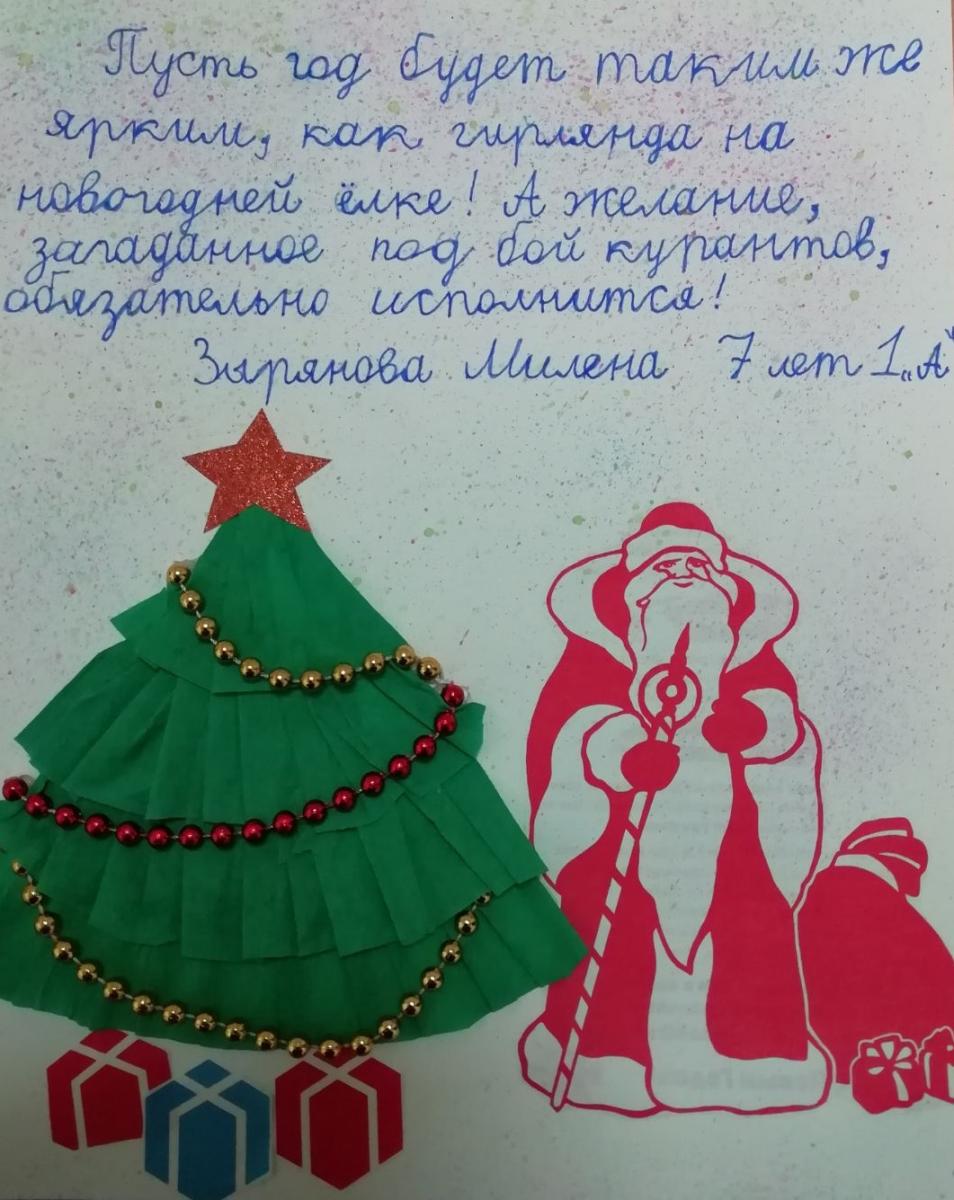 Пусть год будет таким же
ярким, как гирлянда на
новогодней ёлке! А желание,
загаданное под бой курантов,
обязательно исполнится!
Зырянова Милена 7 лет 1 „А“